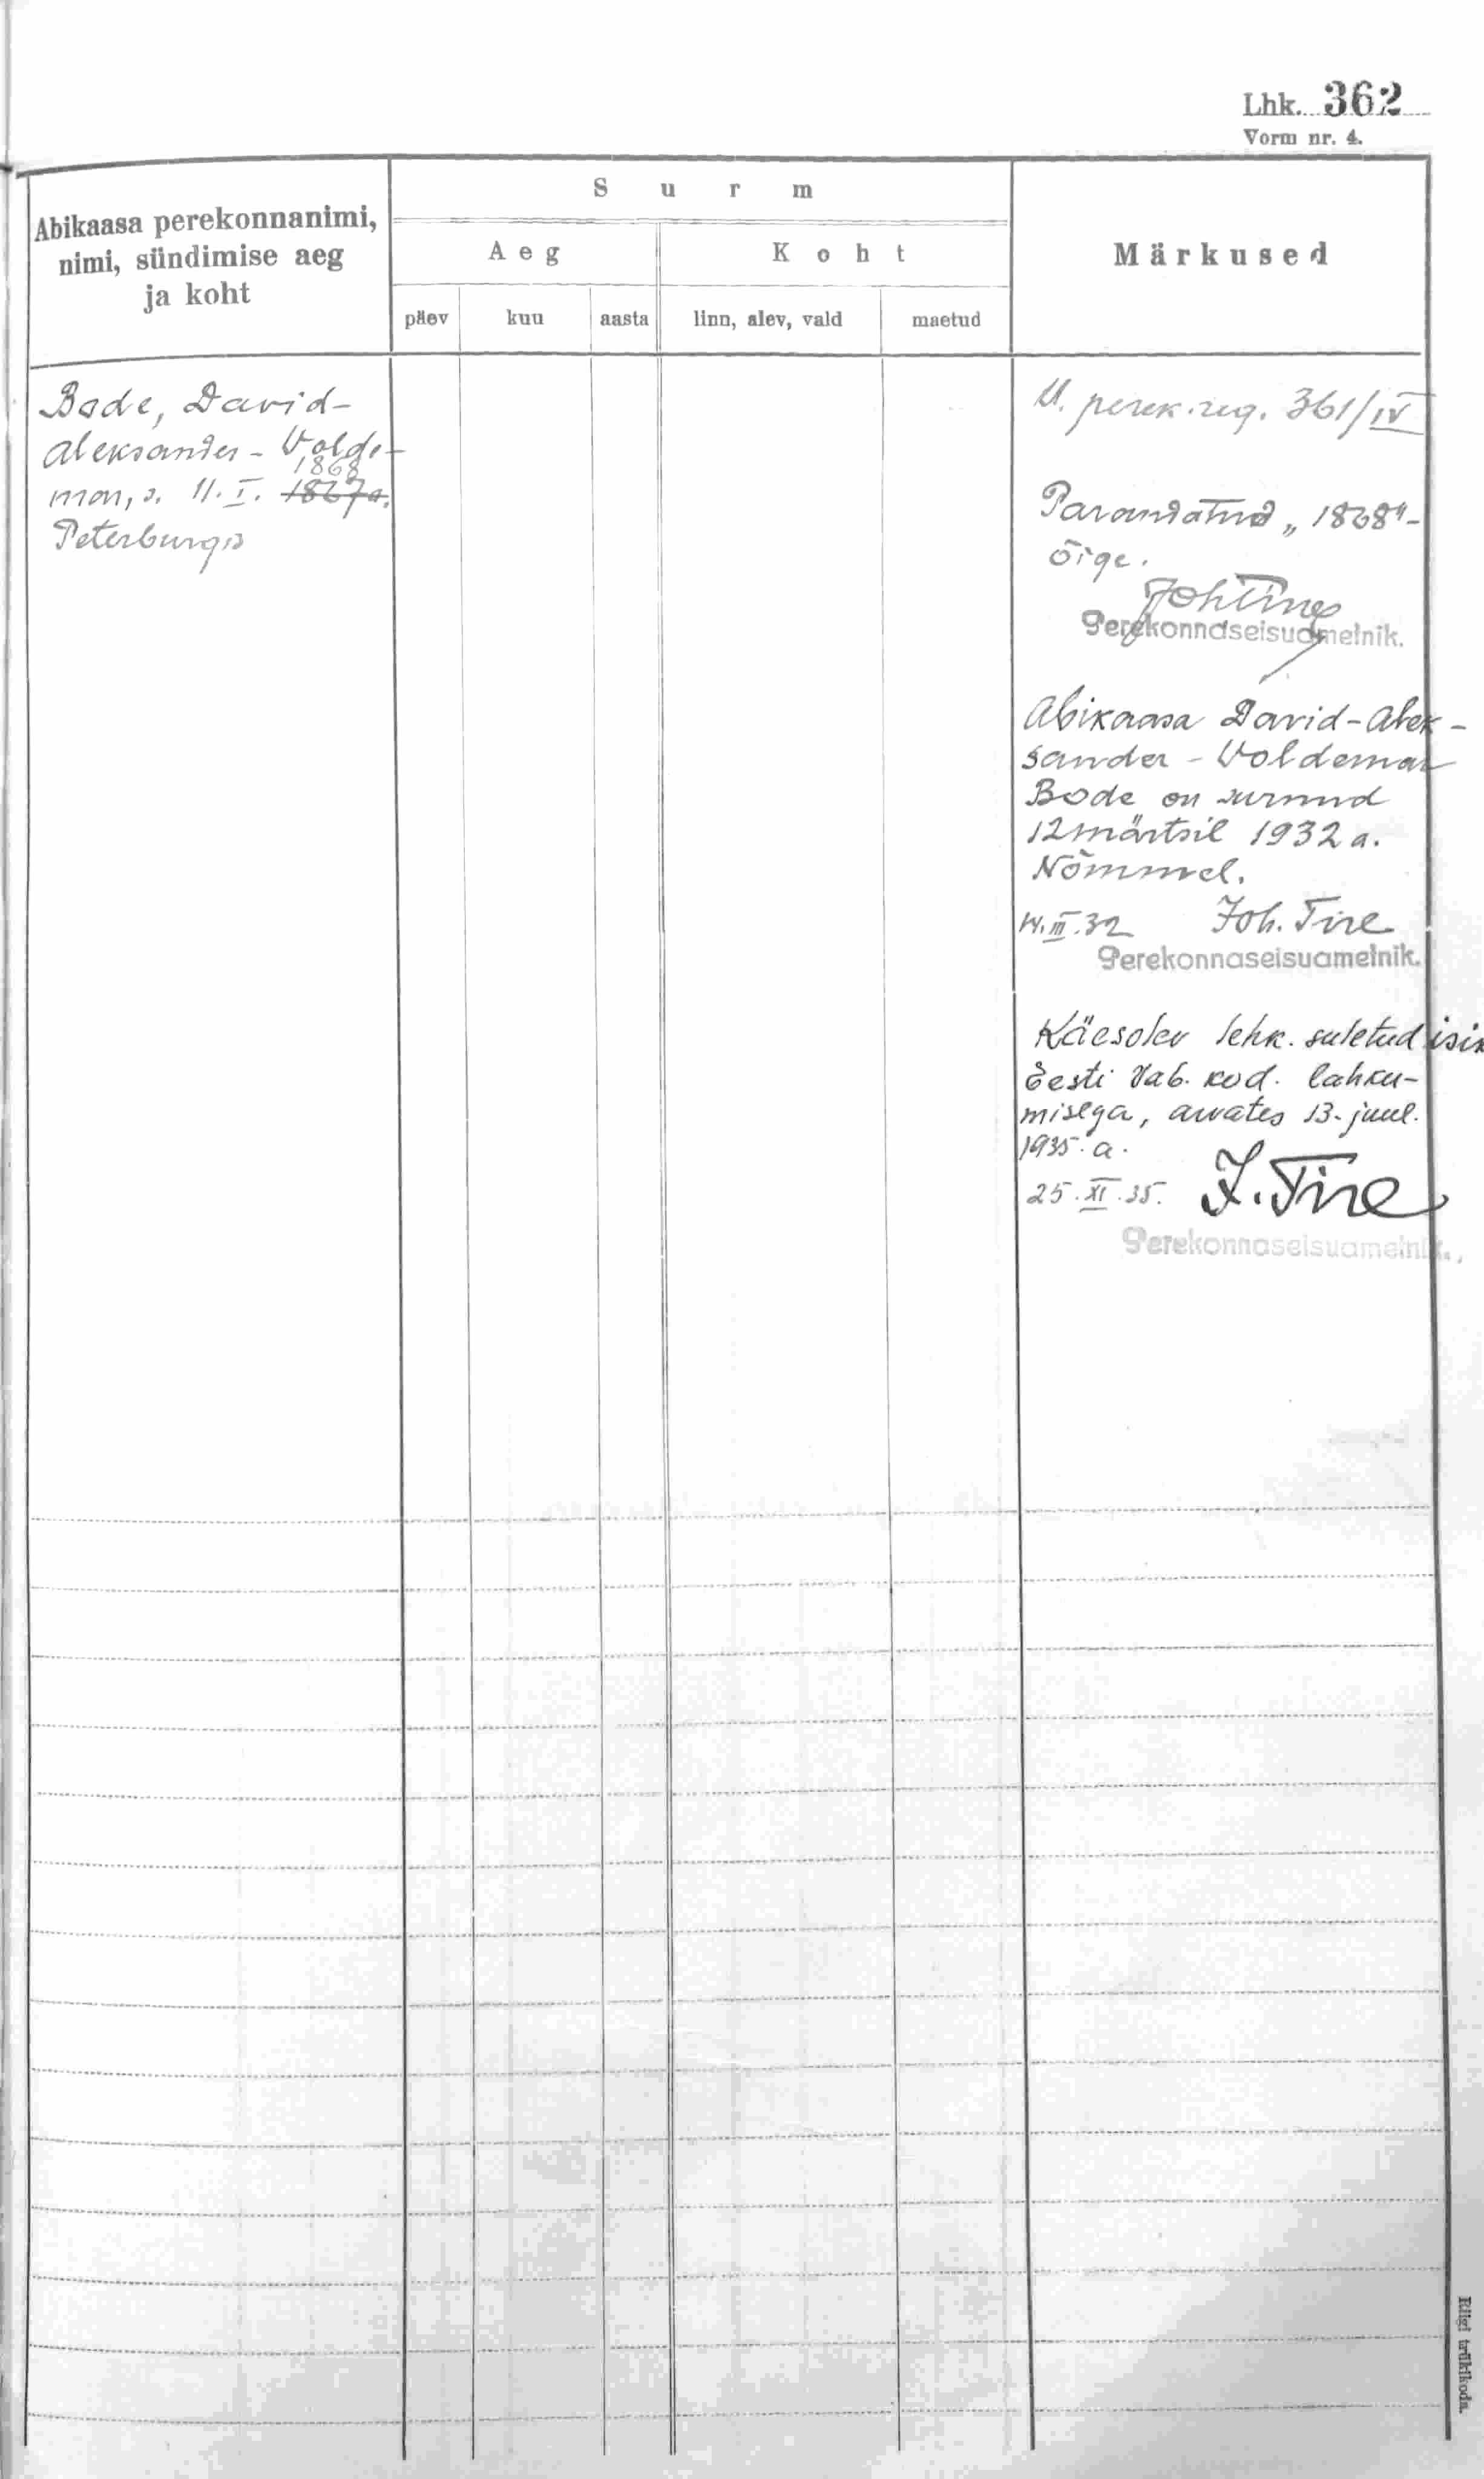 Lhk. 362
Vorm nr. 4.
Abikaasa perekonnanimi,
nimi, sündimise aeg
ja koht
Surm
Aeg
Koht
päev
kuu
aasta
linn, alev, vald
maetud
Märkused
Bode, David-
Aleksander-Volde-
1868
mar, s. 11. I. 1867a.
Peterburgis
U. perek.reg. 361/IV
Parandatud „1868"-
õige.
Perekonnaseisuametnik.
Abikaasa David-Alek-
sander-Voldemar
Bode on surnud
12 märtsil 1932 a.
Nõmmel.
14.III.32 Joh. Tire
Perekonnaseisuametnik.
Käesolev lehk. suletud isik
Eesti Vab. kod. lahku-
misega, arvates 13. juul.
1935. a.
25.XI.35. J. Tire
Perekonnaseisuametnik.
Riigi trükikoda.